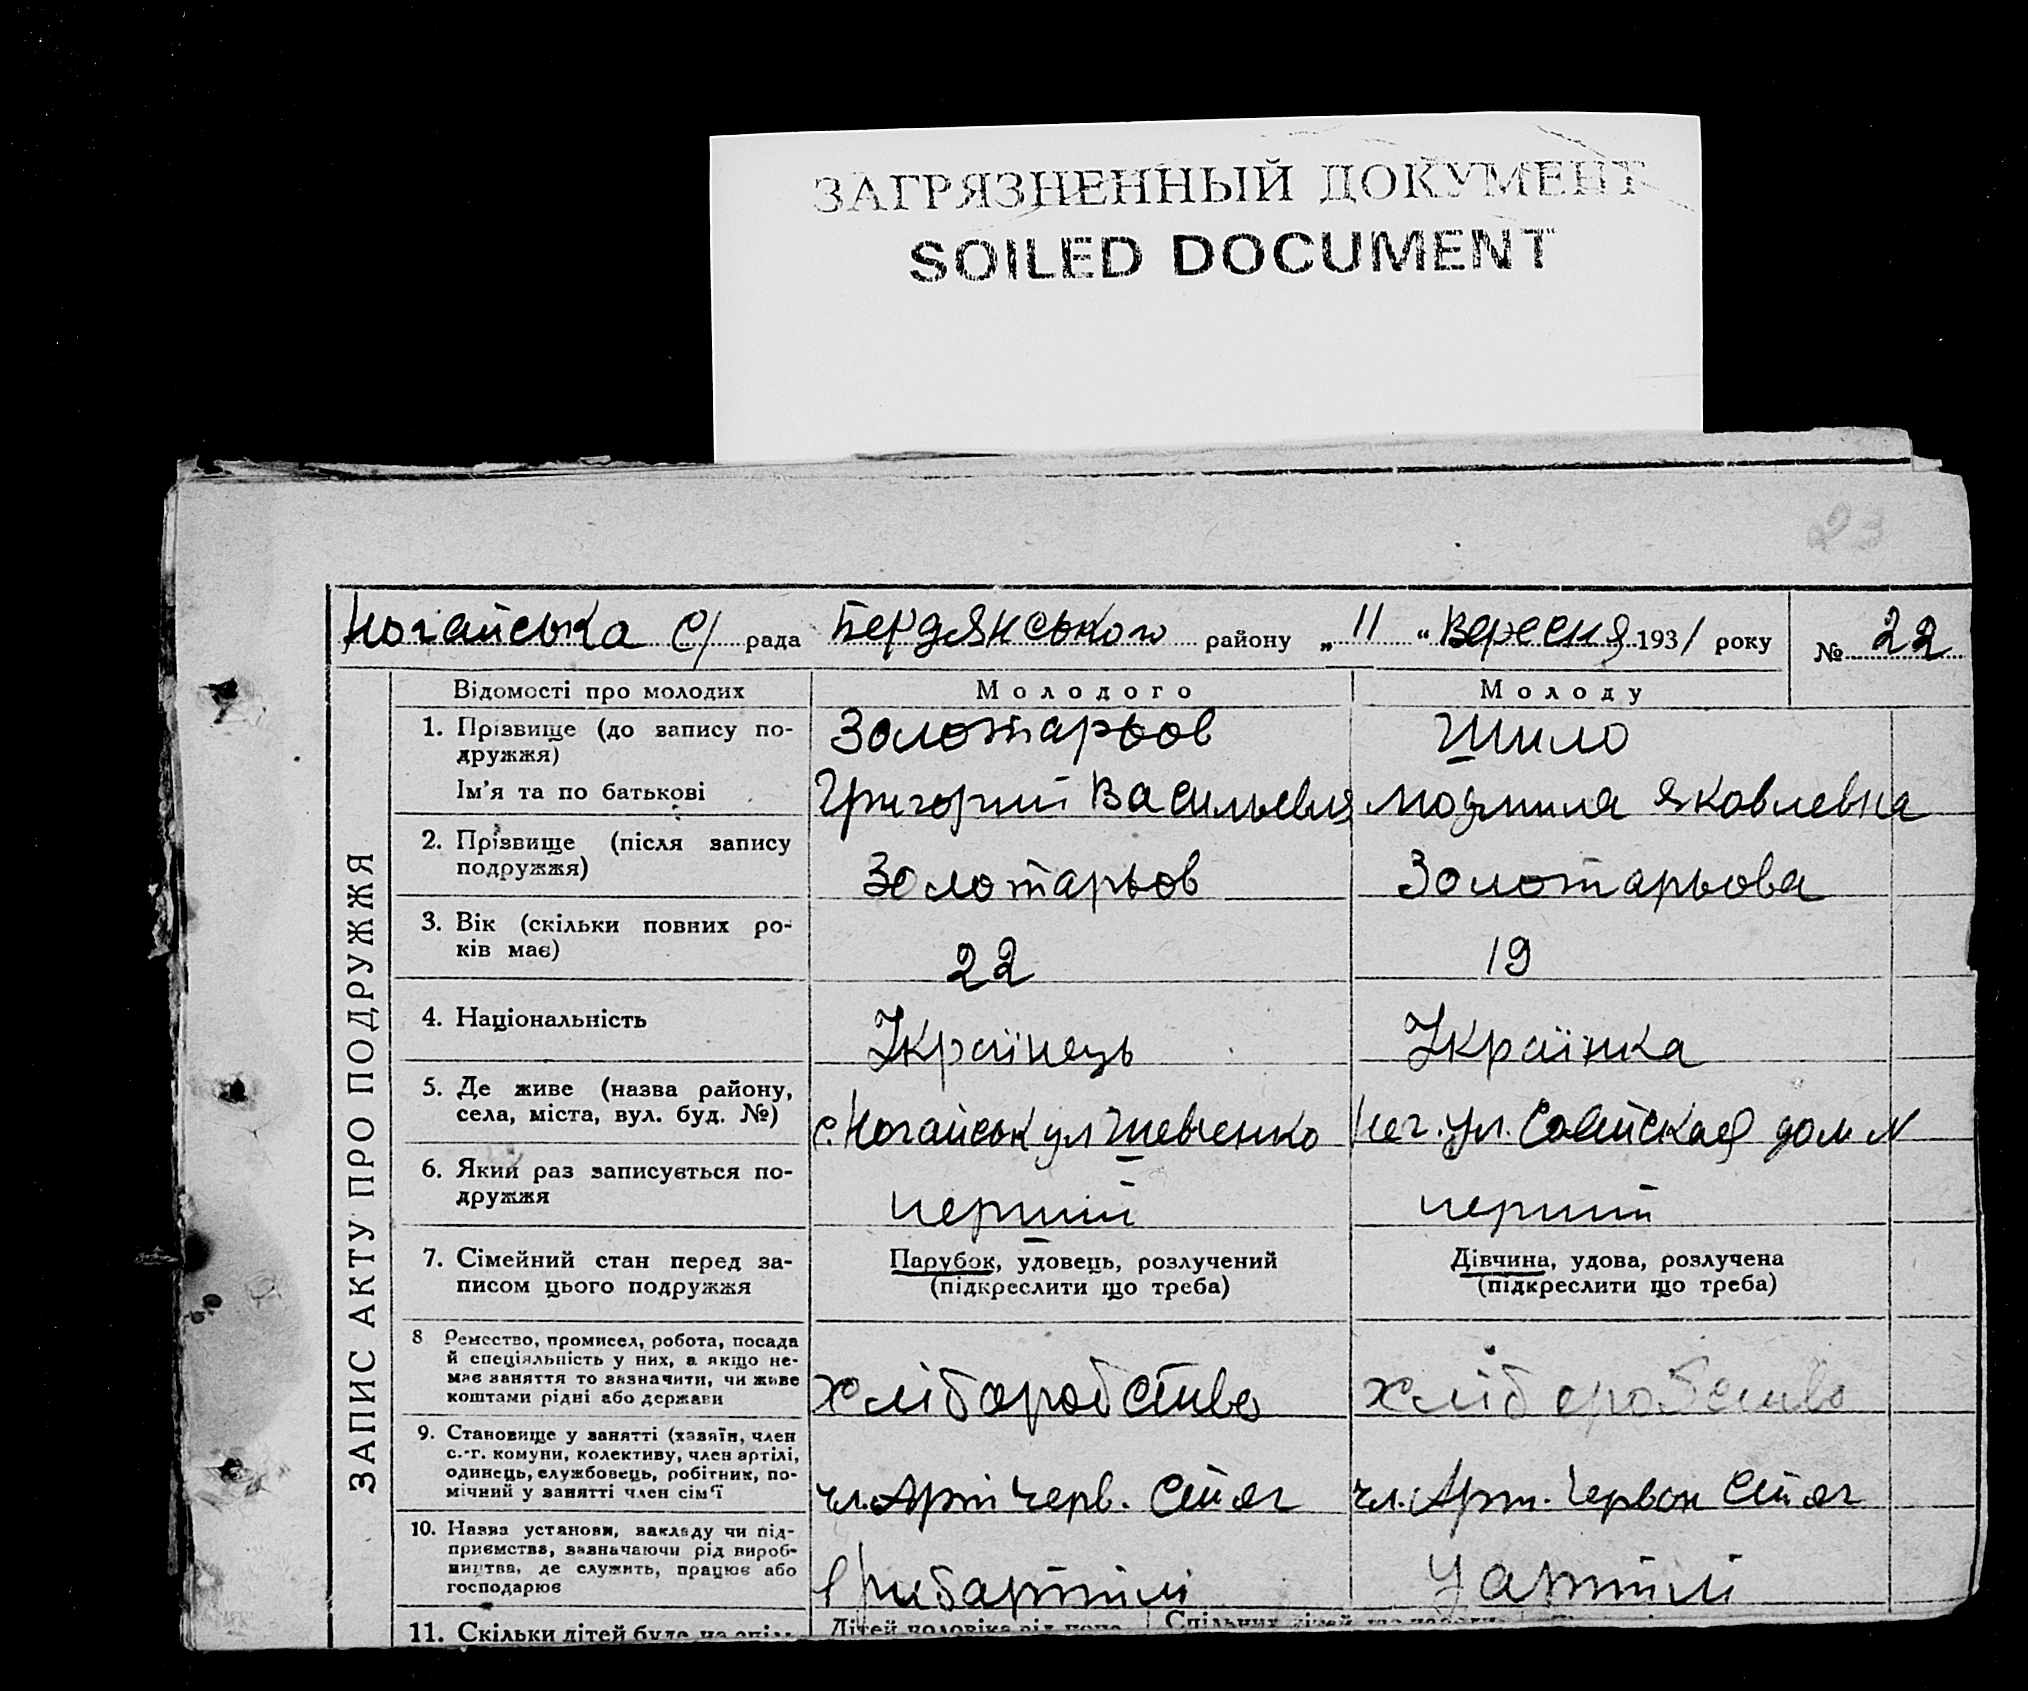 ЗАГРЯЗНЕННЫЙ ДОКУМЕНТ
SOILED DOCUMENT
23
Ногайська С/ рада Бердянського району „ 11 “ Вересня 1931 року № 22
ЗАПИС АКТУ ПРО ПОДРУЖЖЯ
Відомості про молодих Молодого Молоду
1. Прізвище (до запису по-
дружжя) Золотарьов Шило
Ім'я та по батькові Григорий Васильевич Людмила Яковлевна
2. Прізвище (після запису
подружжя) Золотарьов Золотарьова
3. Вік (скільки повних ро-
ків має) 22 19
4. Національність Українець Українка
5. Де живе (назва району,
села, міста, вул. буд. №) с. Ногайськ ул Шевченко Ног. ул. Совейская дом N
6. Який раз записується по-
дружжя перший перший
7. Сімейний стан перед за- Парубок, удовець, розлучений Дівчина, удова, розлучена
писом цього подружжя (підкреслити що треба) (підкреслити що треба)
8 Ремество, промисел, робота, посада
й спеціяльність у них, а якщо не-
має заняття то зазначити, чи живе
коштами рідні або держави Хліборобство Хліборобство
9. Становище у занятті (хазяїн, член
с.-г. комуни, колективу, член артілі,
одинець, службовець, робітник, по-
мічний у занятті член сім'ї чл. Арт Черв. Стяг чл. Арт. Червон Стяг
10. Назва установи, закладу чи під-
приємства, зазначаючи рід вироб-
ництва, де служить, працює або
господарює У артілі
11. Скільки дітей буде на